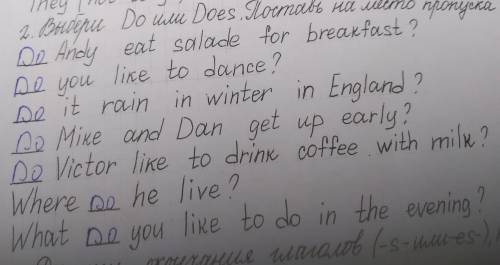 They
2. Выбери Do или Does. Поставь на место пропуска
Do Andy eat salade for breakfast?
Do you like to dance?
Do it rain in winter in England?
Do Mike and Dan get up early?
Do Victor like to drink coffee with milk?
Where Do he live?
What Do you like to do in the evening?
окончания глаголов (-s- или -es-),